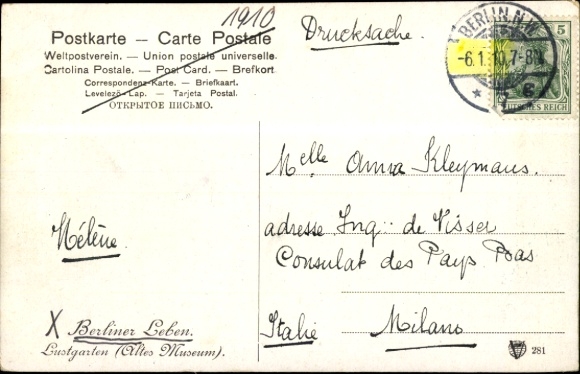 1910
Postkarte — Carte Postale
Drucksache.
Weltpostverein. — Union postale universelle.
Cartolina Postale. — Post Card. — Brefkort.
Correspondenz-Karte. — Briefkaart.
Levelező-Lap. — Tarjeta Postal.
ОТКРЫТОЕ ПИСЬМО.
BERLIN N.W.
-6.1.10.7-8V.
* 7 c
5
DEUTSCHES REICH
Melle Anna Kleymans.
adresse Ing.: de Visser
Consulat des Pays Bas
Milano
Italie
Mélène.
X Berliner Leben.
Lustgarten (Altes Museum).
281